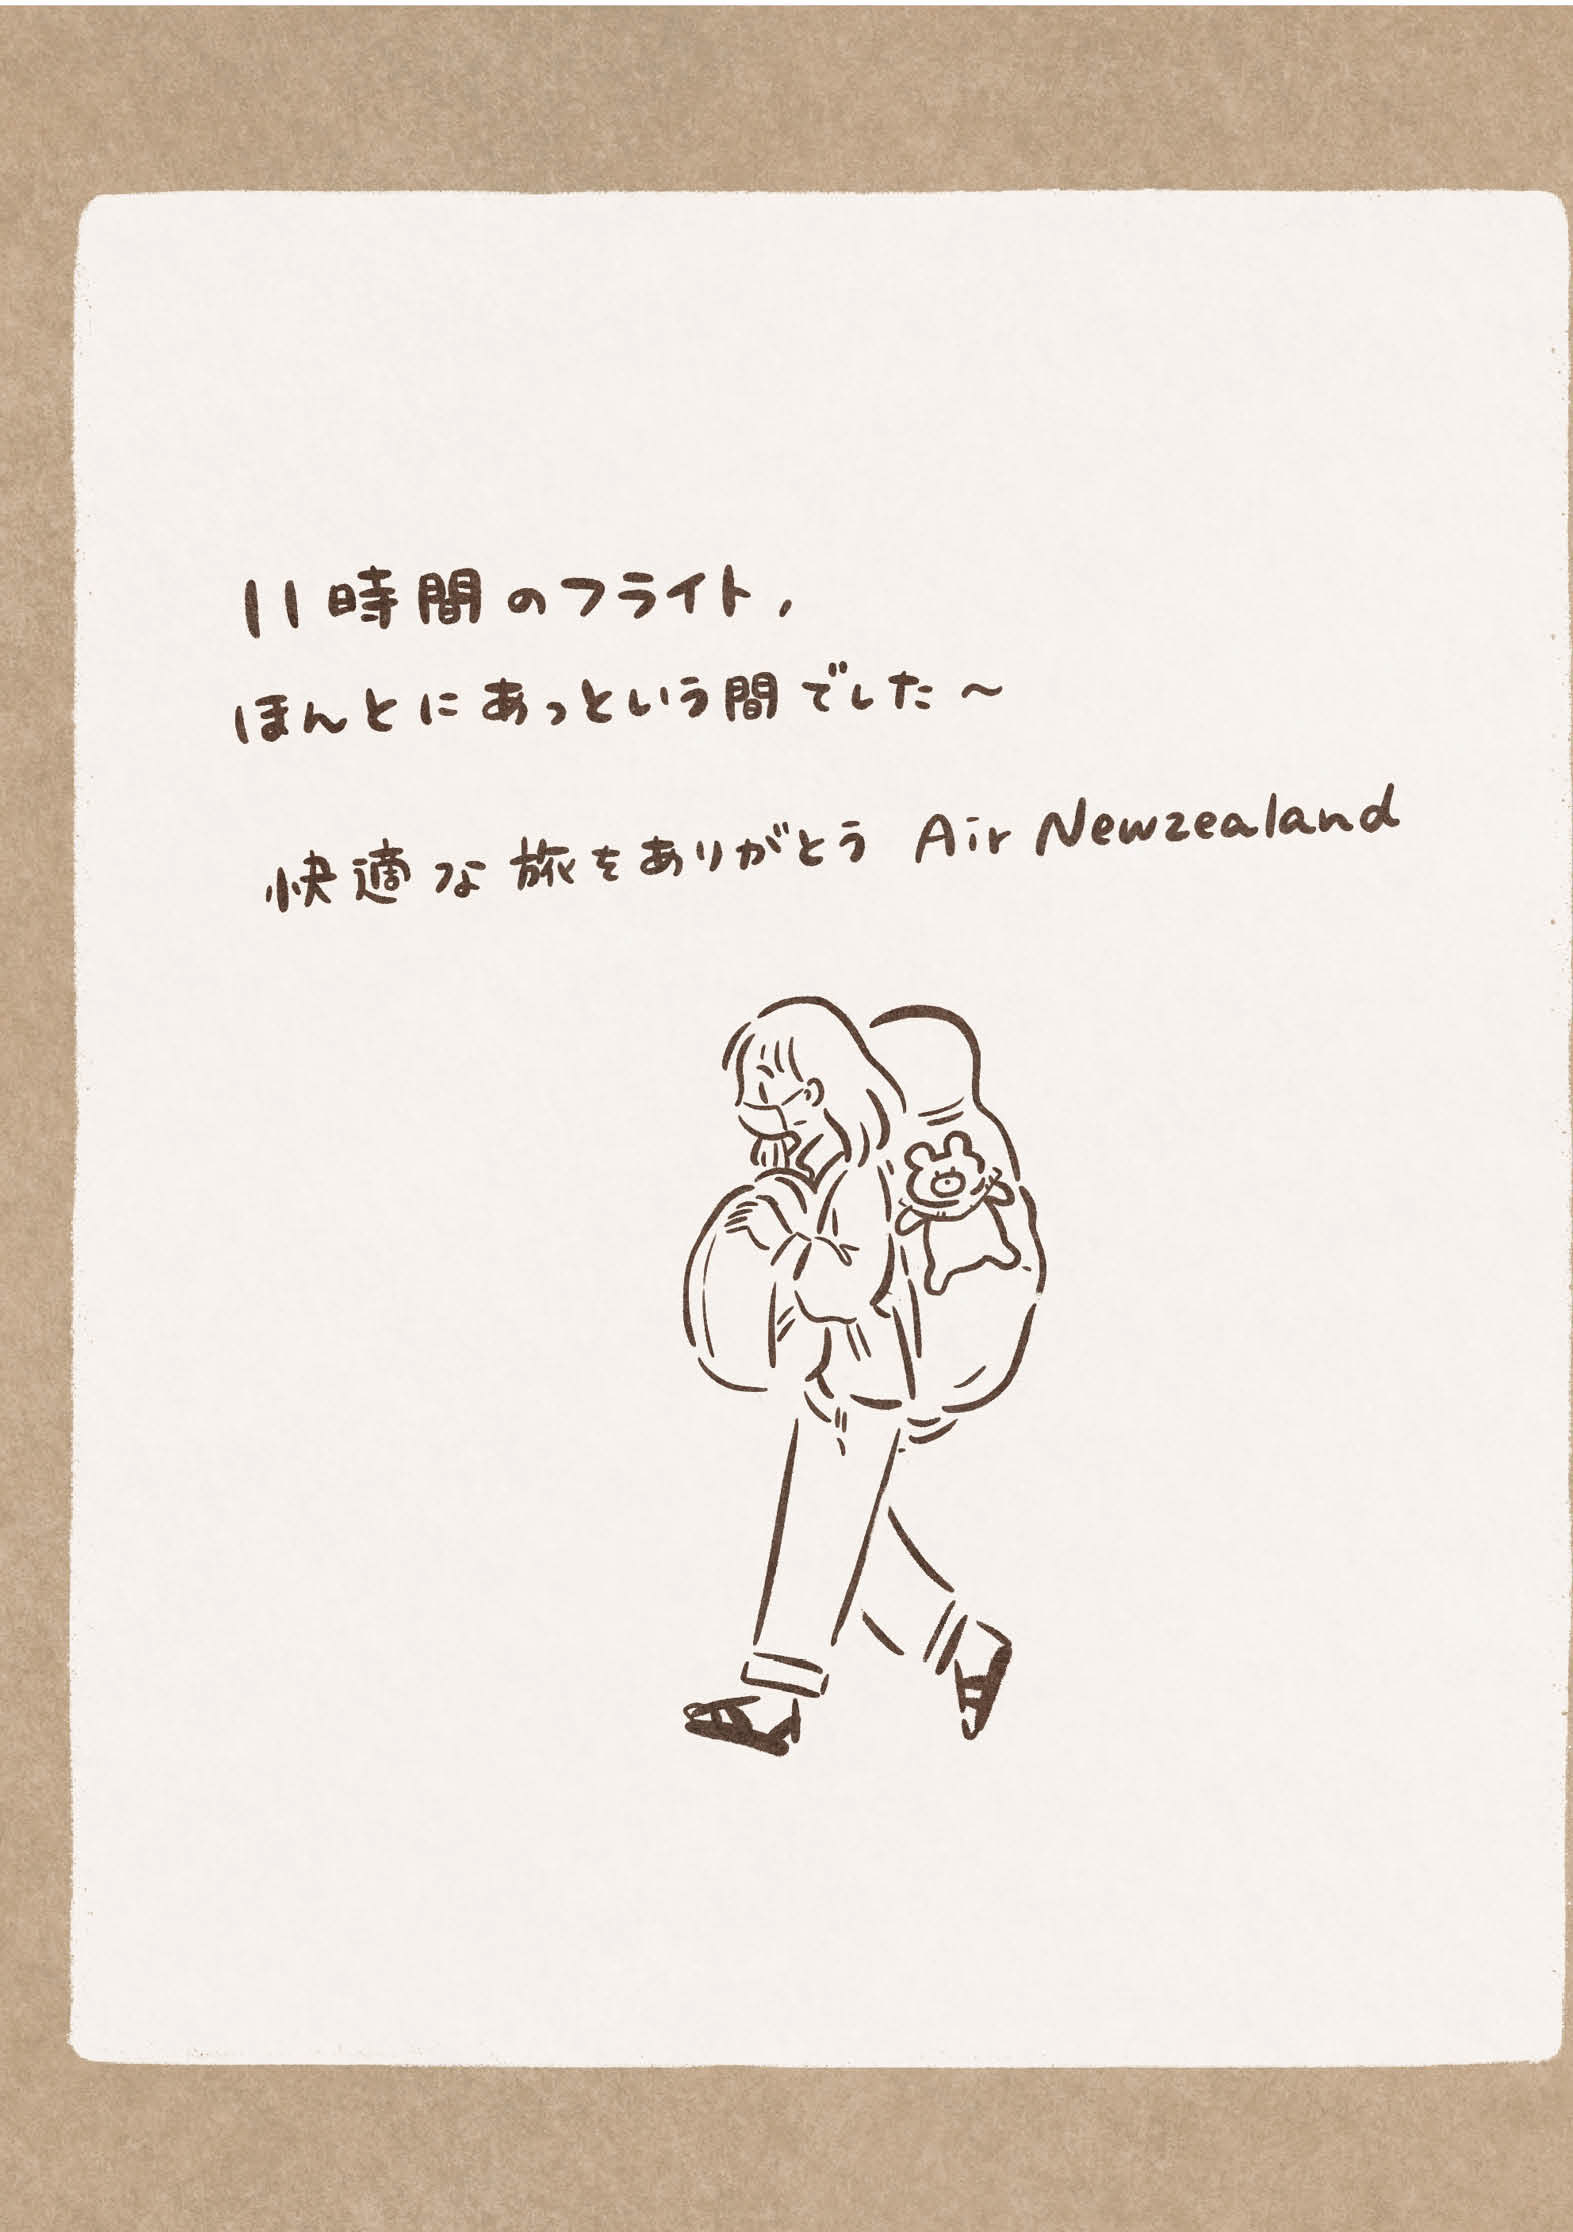 11時間のフライト,
ほんとにあっという間でした〜
快適な旅をありがとう Air Newzealand